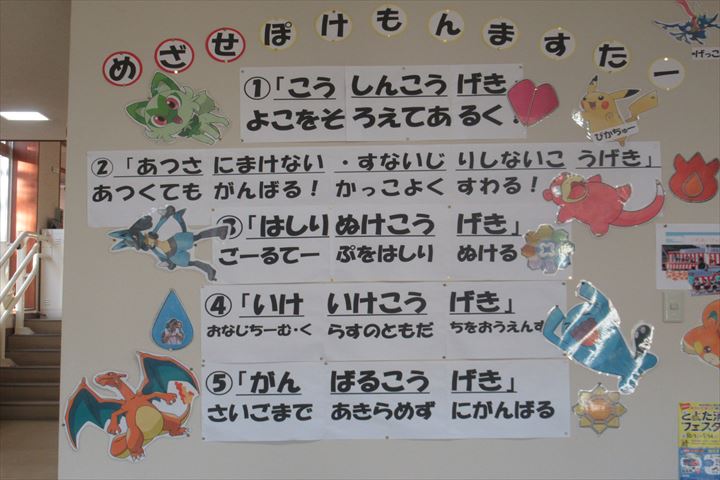 めざせぽけもんますたー
①「こうしんこうげき
よこをそろえてあるく!
ぴかちゅー
げっこ
②「あつさにまけない・すないじりしないこうげき」
あつくてもがんばる!かっこよくすわる!
③「はしりぬけこうげき」
ごーるてーぷをはしりぬける
④「いけいけこうげき」
おなじちーむ・くらすのともだちをおうえんす
⑤「がんばるこうげき」
さいごまであきらめずにがんばる
フェスタ